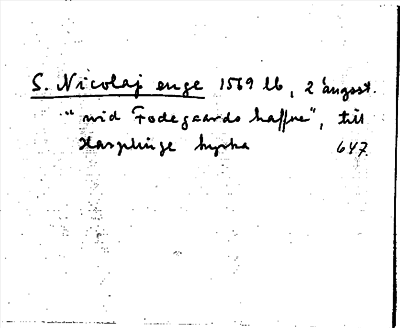 S. Nicolaj enge 1569 lb, 2 ångsst.
"wid Fodegaards haffue", till
Harplinge kyrka 647